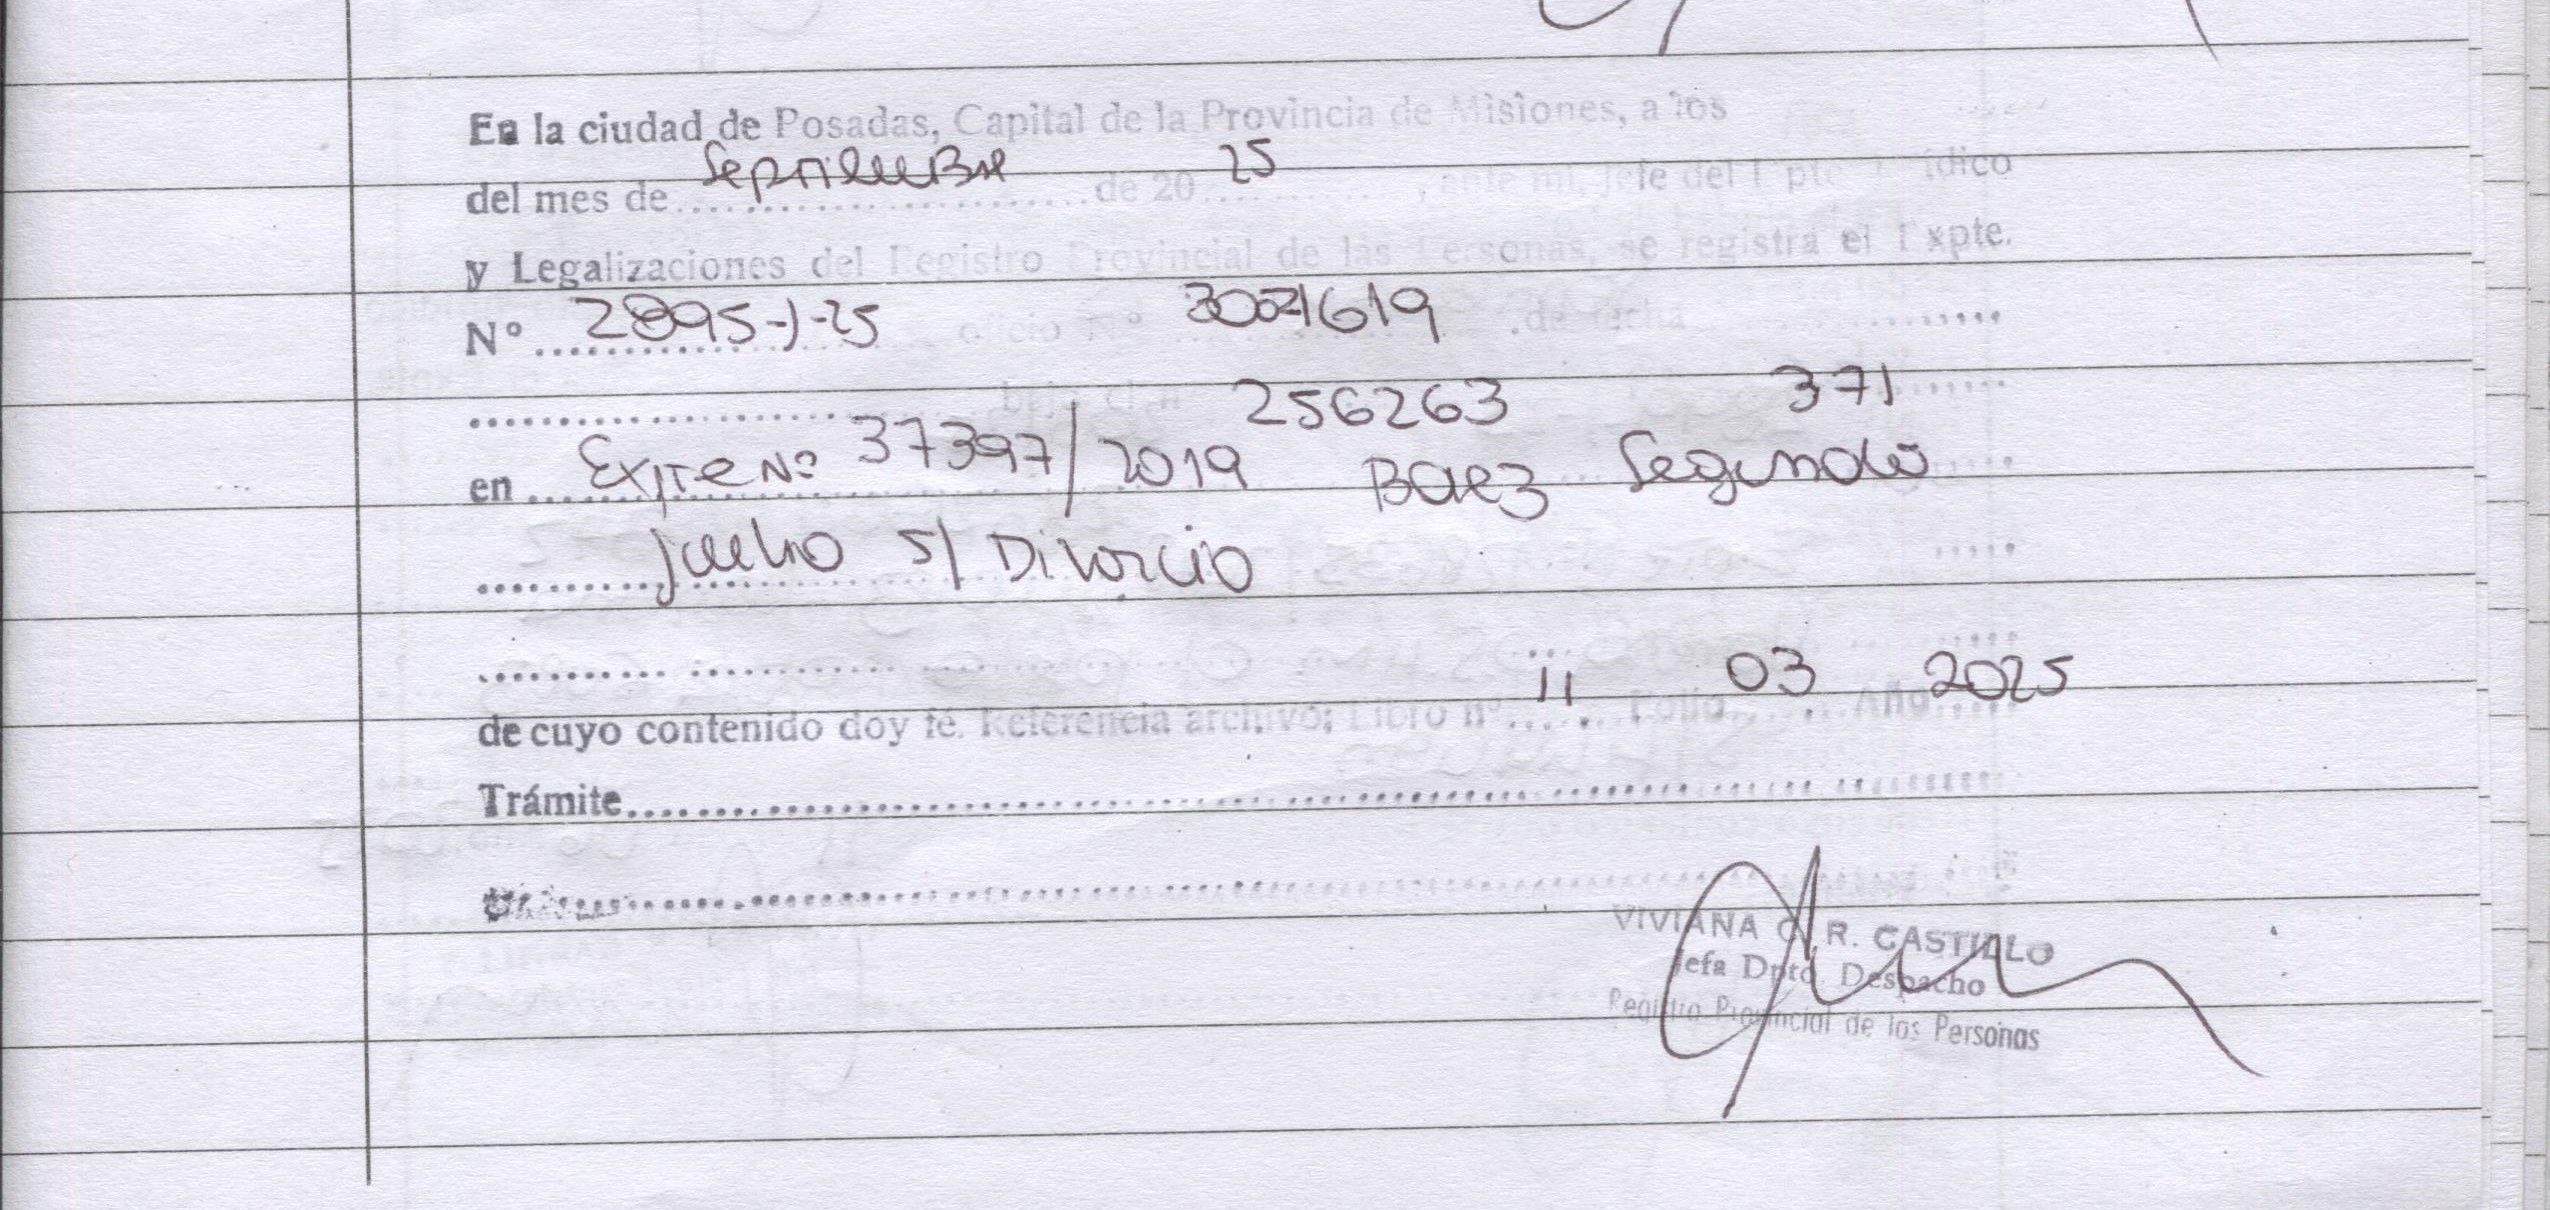 En la ciudad de Posadas, Capital de la Provincia de Misiones, a los
del mes de Septiembre de 20 25, ante mi, Jefe del Dpto. Jurídico
y Legalizaciones del Registro Provincial de las Personas, se registra el Expte.
N° 2895-J-25 oficio N° 3004619 de fecha
bajo el n° 256263 371
en Expte N° 37397/2019 Baez Segundo
Julio S/ Divorcio
de cuyo contenido doy fé. Referencia archivo: Libro n° 11 Folio 03 Año 2025
Trámite
VIVIANA C. R. CASTILLO
Jefa Dpto. Despacho
Registro Provincial de las Personas